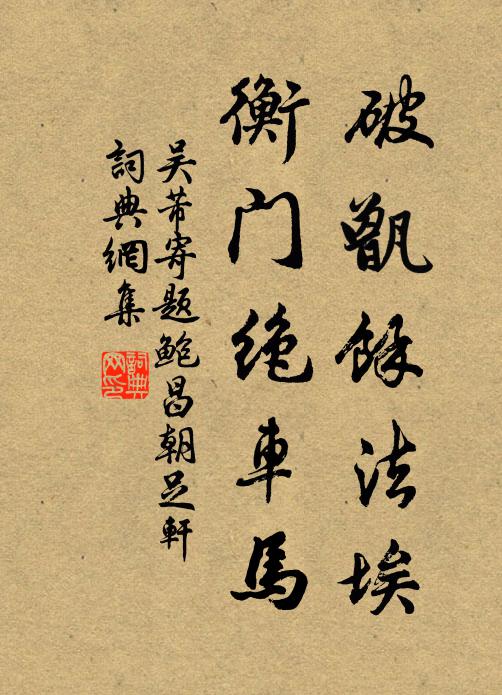 破甑餘法埃
衡门绝車馬
吴芾寄题鲍昌朝足軒
詞典網集
詞典网印